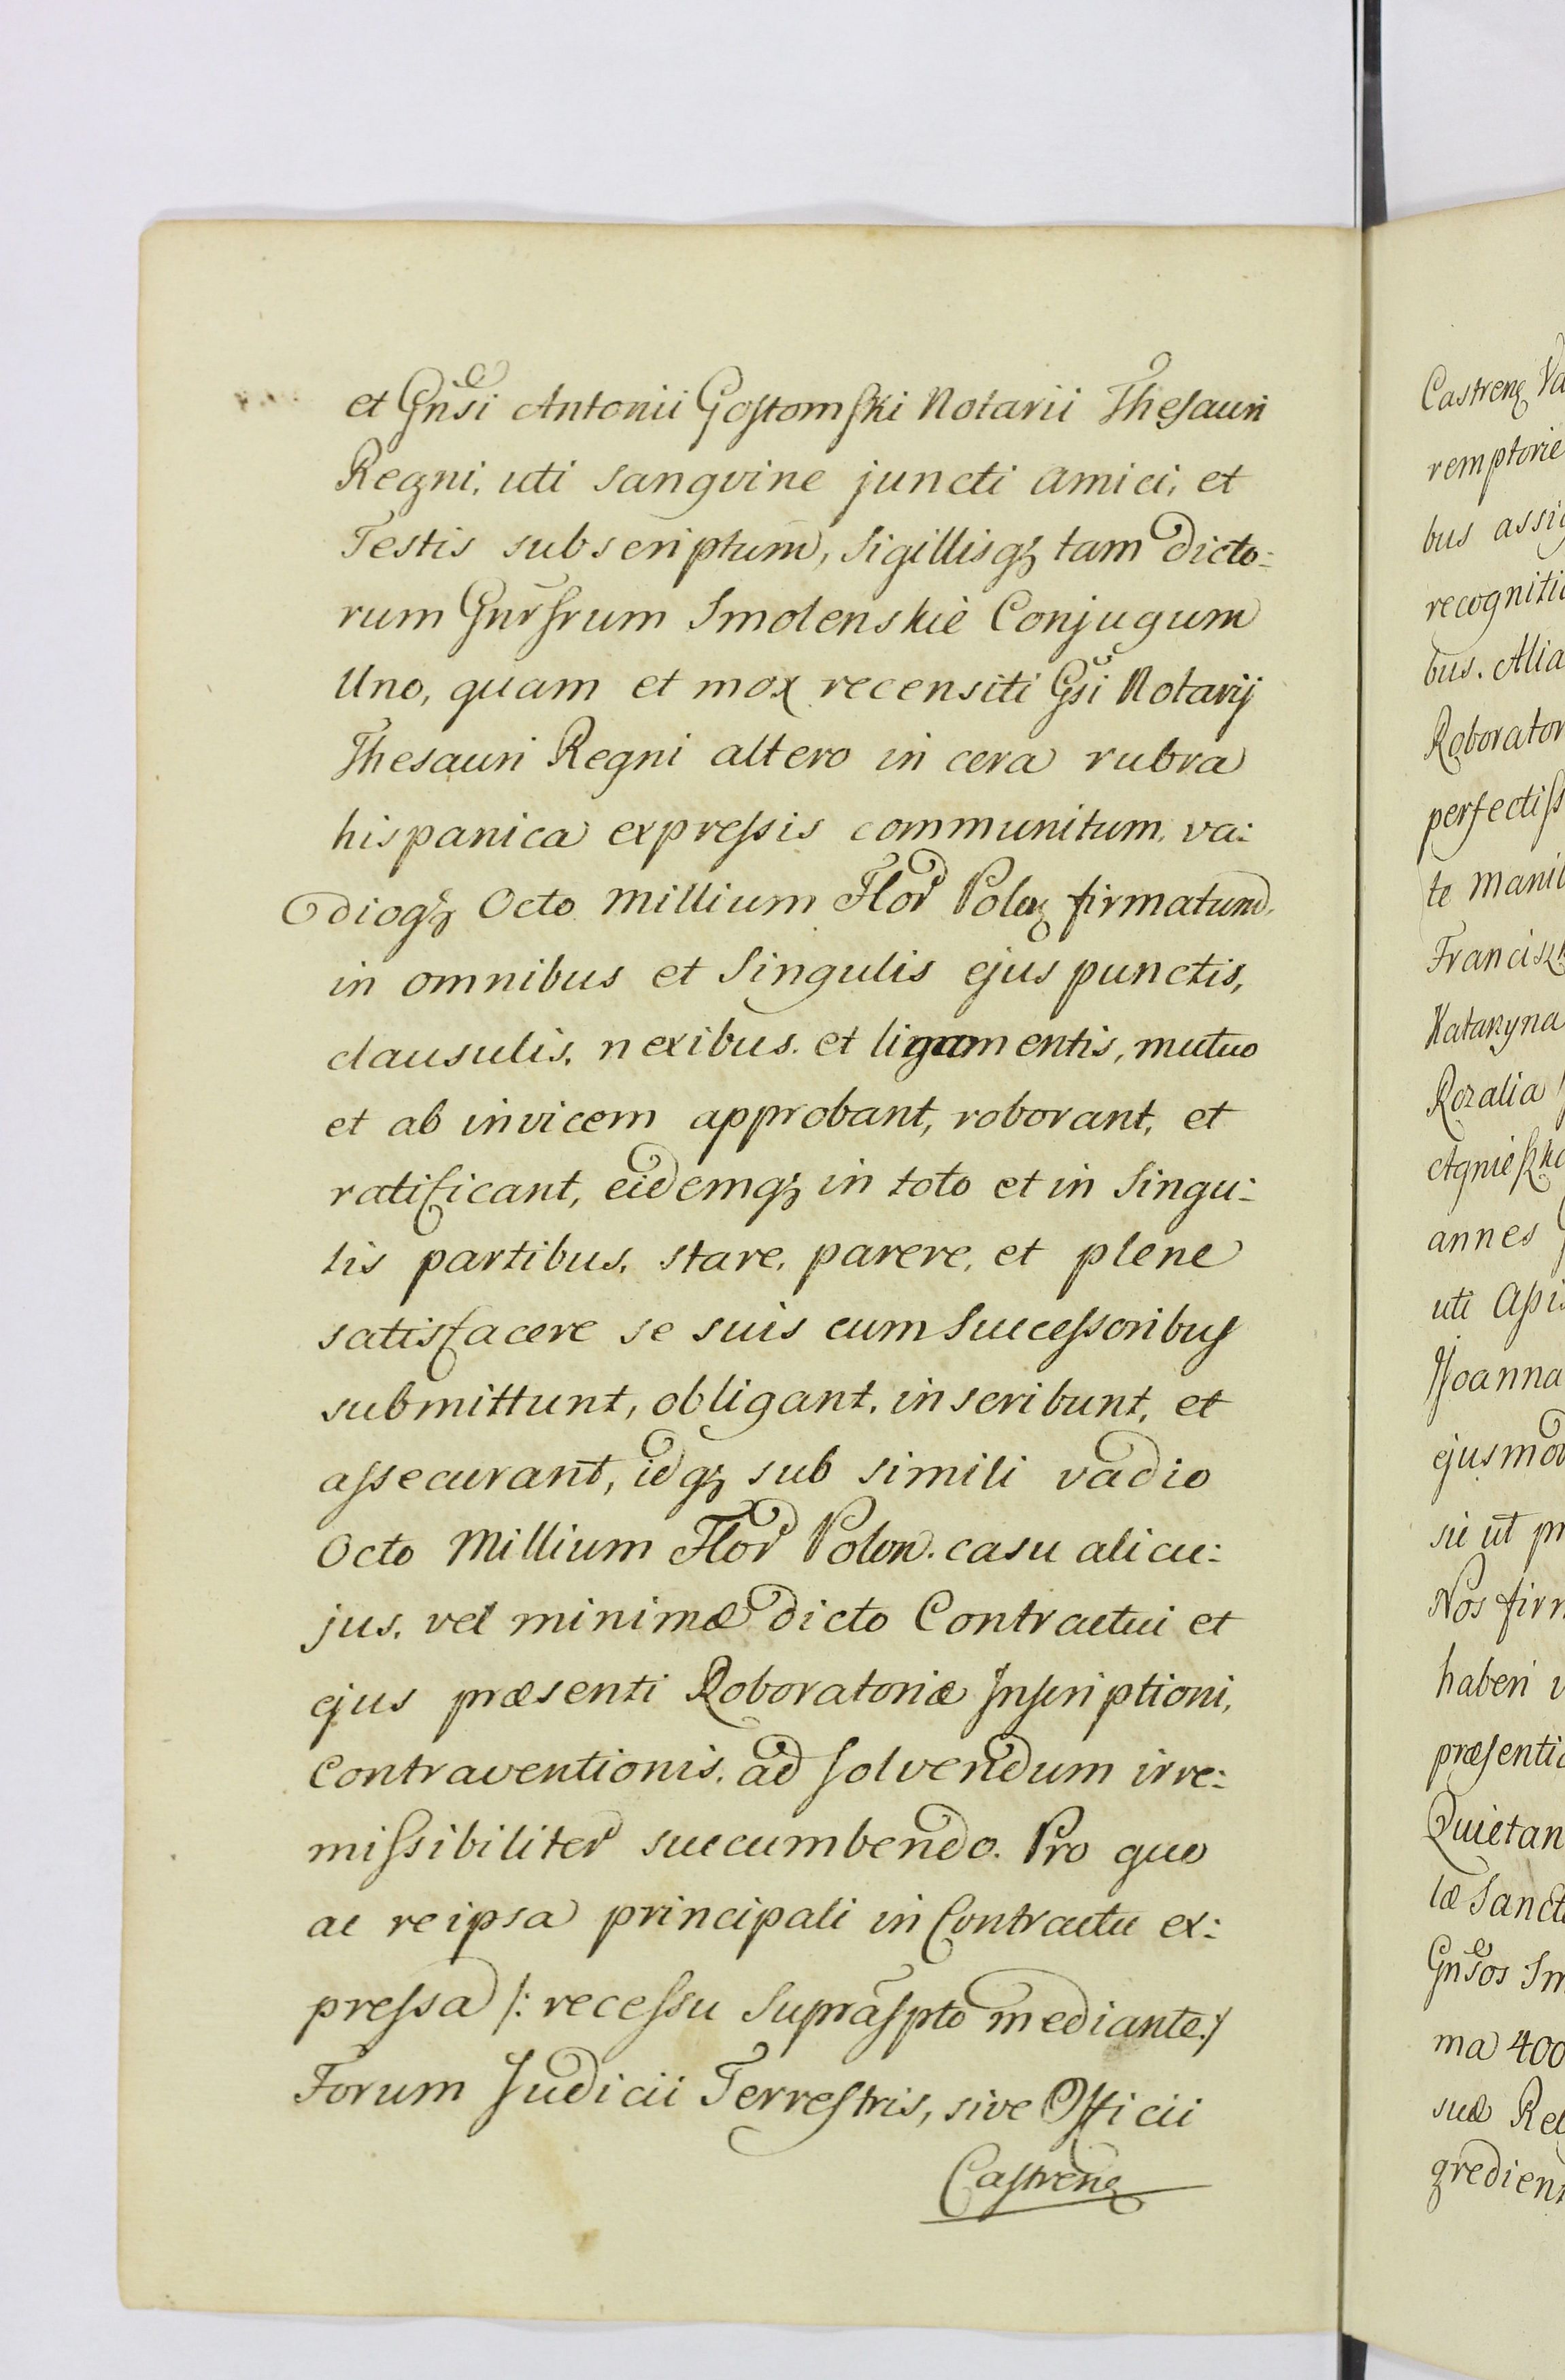 et Gnsi Antonii Gostomski Notarii Thesauri
Regni, uti sangvine juncti amici, et
Testis subscriptum, Sigillisqȝ tam dicto:
rum Gnrsrum Smolenskiè Conjugum
Uno, quam et mox recensiti Gsi Notarij
Thesauri Regni altero in cera rubra
hispanica expressis communitum, va:
dioqȝ Octo Millium Flor Polon firmatum,
in omnibus et Singulis ejus punctis,
clausulis, nexibus, et ligamentis, mutuo
et ab invicem approbant, roborant, et
ratificant, eidemqȝ in toto et in Singu:
lis partibus, stare, parere, et plene
satisfacere se suis cum Successoribus
submittunt, obligant, inscribunt, et
assecurant, idqȝ sub simili vadio
Octo Millium Flor Polon. casu alicu:
jus, vel minimæ dicto Contractui et
ejus præsenti Roboratoriæ Inscriptioni,
Contraventionis, ad solvendum irre:
missibiliter succumbendo. Pro quo
ac reipsa principali in Contractu ex:
pressa /: recessu Suprãspto mediante :/
Forum Judicii Terrestris, sive Officii
Castren
Castren Va
remptorie
bus assig
recognitio
bus. Alia
Roborator
perfectiss
te Manib
Francisz
Katarzyna
Rozalia
Agnieszka
annes
uti Assi
Joanna
ejusmod
sic ut pr
Nos firm
haberi v
præsentia
Quietan
læ Sanct
Gnsos Sm
ma 400
suæ Re
gredien